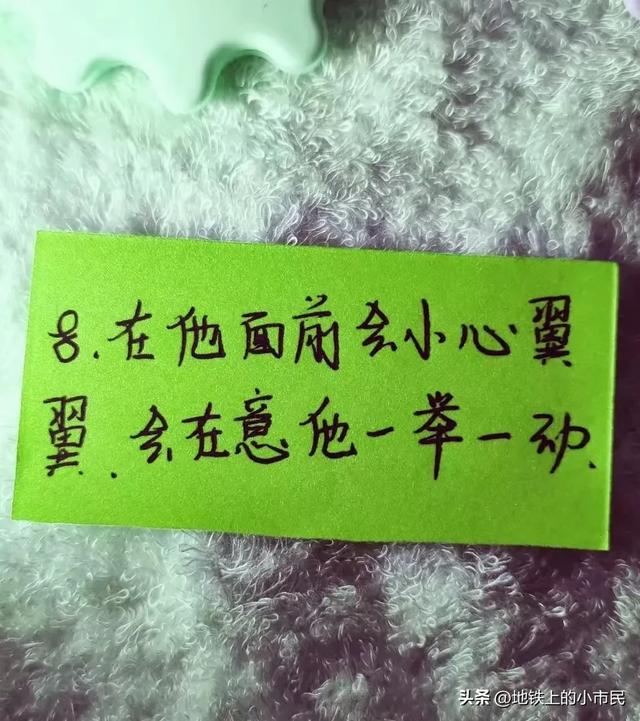 8.在他面前会小心翼
翼.会在意他一举一动.
头条 @地铁上的小市民